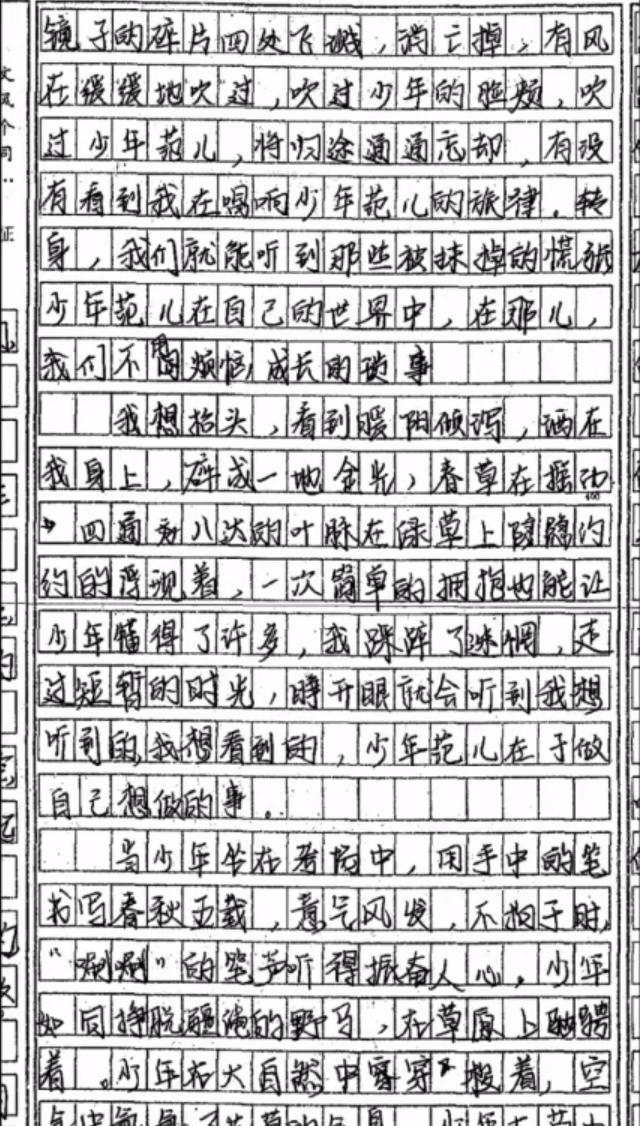 镜子的碎片四处飞溅,消亡掉,有风
在缓缓地吹过,吹过少年的脸颊,吹
过少年范儿,将归途通通忘却,有没
有看到我在唱响少年范儿的旅律.转
身,我们就能听到那些被抹掉的慌张
少年范儿在自己的世界中,在那儿,
我们不用烦恼,成长的琐事
我想抬头,看到暖阳倾泻,洒在
我身上,碎成一地金光,春草在摇动
400
四通八达的叶脉在绿草上隐隐约
约的浮现着,一次简单的拥抱也能让
少年懂得了许多,我踩碎了迷惘,走
过短暂的时光,睁开眼就会听到我想
听到的,我想看到的,少年范儿在于做
自己想做的事.
当少年坐在考场中,用手中的笔
书写春秋五载,意气风发,不拘于时,
"唰唰"的笔声听得振奋人心.少年
如同挣脱疆绳的野马,在草原上驰骋
着.少年在大自然中穿着,空
文风不同
证